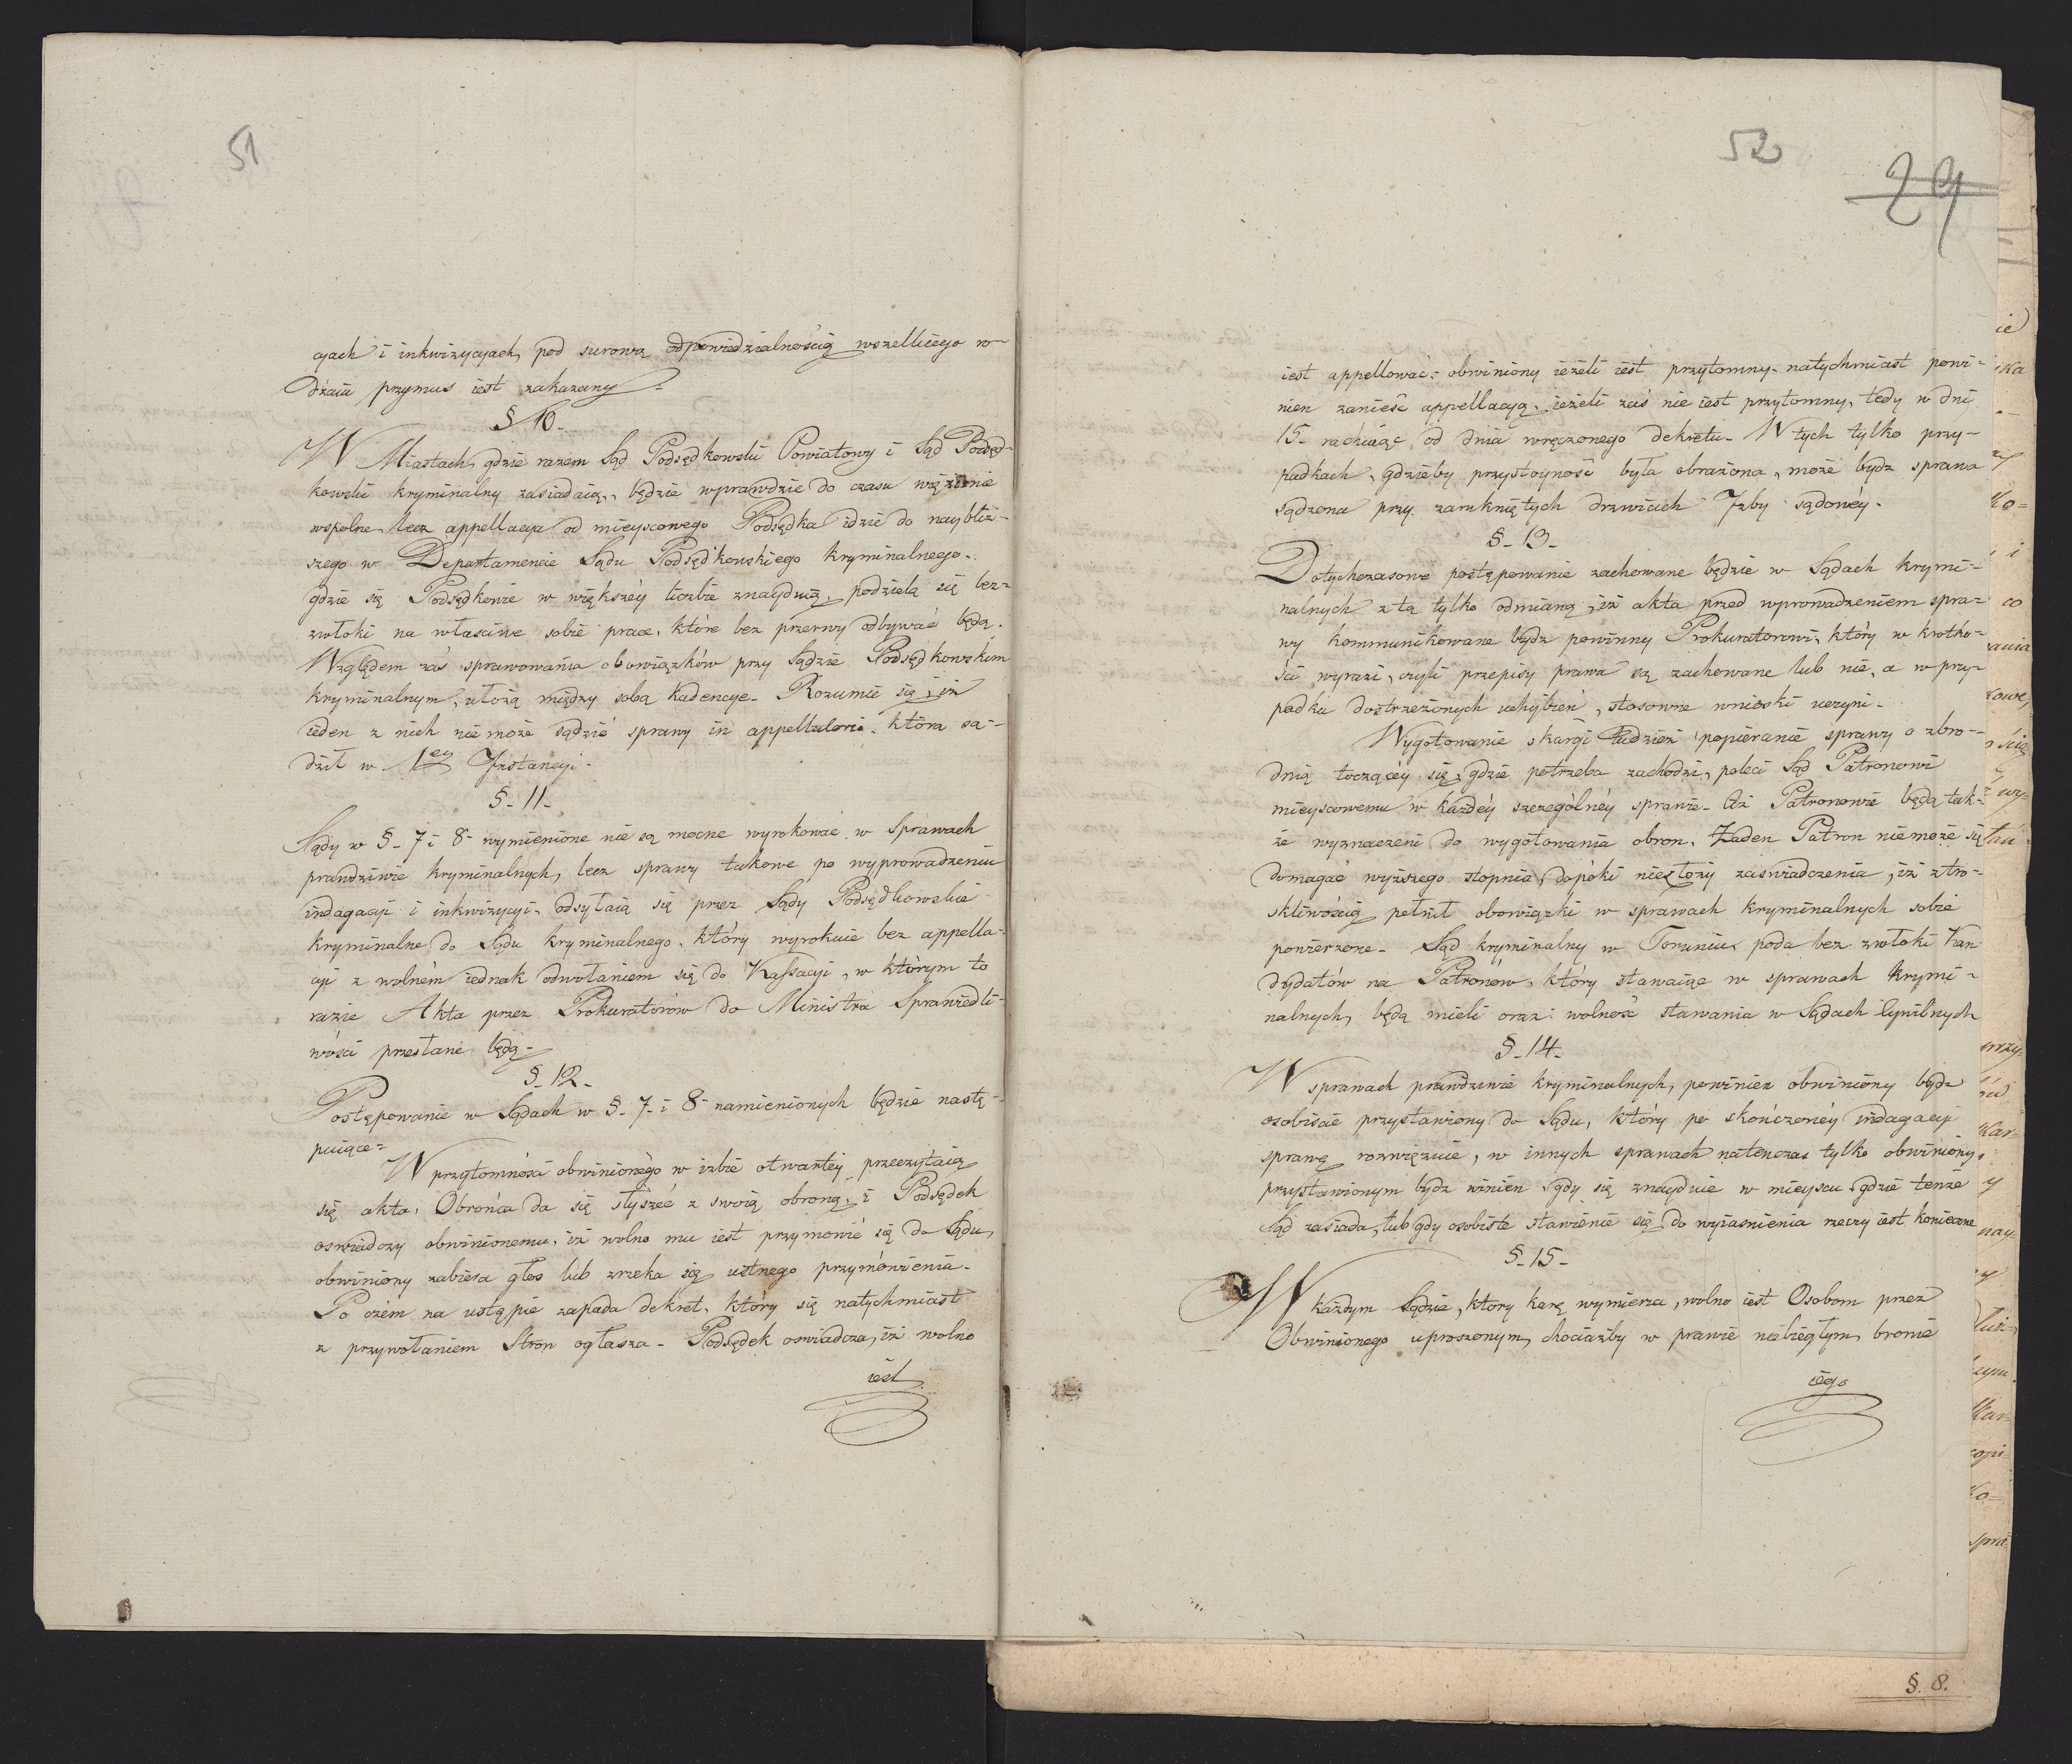 51
cyach i inkwizycyach, pod surową odpowiedzialnością wszelkiego ro-
dzaiu przymus iest zakazany.
§ 10.
W Miastach, gdzie razem Sąd Podsędkowski Powiatowy i Sąd Podsęd-
kowski kryminalny zasiadaią, będzie wprawdzie do czasu więzienie
wspolne, lecz appellacya od mieyscowego Podsędka idzie do naybliż-
szego w Departamencie Sądu Podsędkowskiego kryminalnego.
gdzie się Podsędkowie w większéy liczbie znayduią, podzielą się bez-
zwłoki na właściwe sobie prace, które bez przerwy odbywać będą.
Względem zaś sprawowania obowiązków przy Sądzie Podsędkowskim
kryminalnym, ułożą między sobą Kadencye. Rozumie się, iż
ieden z nich nie może sądzić sprawy in appellatorio, którą są-
dził w 1ey Instancyi.
§ - 11 -
Sądy w §- 7 i 8- wymienione nie są mocne wyrokować w Sprawach
prawdziwie kryminalnych, lecz sprawy takowe po wyprowadzeniu
indagacyi i inkwizycyi, odsyłaią się przez Sądy Podsędkowskie
kryminalne do Sądu kryminalnego, który wyrokuie bez appella-
cyi z wolném iednak odwołaniem się do Kassacyi, w którym to
razie Akta przez Prokuratorów do Ministra Sprawiedli-
wości przesłane będą -
§ - 12 -
Postępowanie w Sądach w §- 7- i 8- namienionych będzie nastę-
puiące=
W przytomności obwinionégo w izbie otwartéy przeczytaią
się akta, Obrońca da się słyszéć z swoią obroną, i Podsędek
oswiadczy obwinionemu, iż wolno mu iest przymowić się do Sądu,
obwiniony zabiera głos lub zrzeka się ustnego przymówienia.
Po czém na ustępie zapada dekret, który się natychmiast
z przywołaniem Stron ogłasza - Podsędek oswiadcza, iż wolno
iest
52
29
iest appellować: obwiniony ieżeli iest przytomny, natychmiast powi-
nien zanieść appellacyą, ieżeli zaś nie iest przytomny, tedy w dni
15- rachuiąc od dnia wręczonego dekretu - W tych tylko przy-
padkach, gdzieby przystoyność była obrażona, może bydz sprawa
sądzona przy zamkniętych drzwiach Izby sądowéy.
§ - 13 -
Dotychczasowe postępowanie zachowane będzie w Sądach krymi-
nalnych z tą tylko odmianą, iż akta przed wprowadzeniem spra-
wy kommunikowane bydz powinny Prokuratorowi, który w krotko-
ści wyrazi, czyli przepisy prawa są zachowane lub nie, a w przy-
padku dostrzeżonych uchybień, stosowne wnioski uczyni -
Wygotowanie skargi tudzież popieranie sprawy o zbro-
dnią toczącéy się, gdzie potrzeba zachodzi, poleci Sąd Patronowi
mieyscowemu w każdéy szczególnéy sprawie. Ciż Patronowie będą tak-
że wyznaczeni do wygotowania obron, Żaden Patron niemoże się
domagać wyższego stopnia, dopóki niezłoży zaświadczenia, iż z tro-
skliwością pełnił obowiązki w sprawach kryminalnych sobie
powierzone. Sąd kryminalny w Toruniu, poda bez zwłoki Kan
dydatów na Patronów, który stawaiąc w sprawach krymi-
nalnych, będą mieli oraz wolność stawania w Sądach Cywilnych
§ - 14 -
W sprawach prawdziwie kryminalnych, powinien obwiniony bydz
osobiscie przystawiony do Sądu, który po skończonéy indagacyi
sprawę rozwięzuie, w innych sprawach natenczas tylko obwiniony
przystawionym bydz winien gdy się znayduie w mieyscu gdzie tenże
Sąd zasiada, lub gdy osobiste stawienie się do wyiasnienia rzeczy iest konieczne
§ - 15 -
W każdym Sądzie, który karę wymierza, wolno iest Osobom przez
Obwinionego uproszonym, chociażby w prawie niebiegłym, bronić
iego
§. 8.